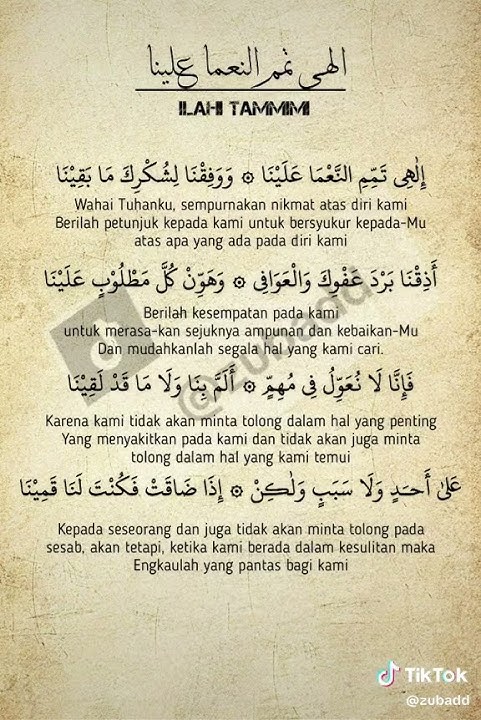 الهي تمم النعما علينا
ILAHI TAMMIMI
إِلٰهِى تَمِّمِ النَّعْمَا عَلَيْنَا ۞ وَوَفِقْنَا لِشُكْرِكَ مَا بَقِيْنَا
Wahai Tuhanku, sempurnakan nikmat atas diri kami
Berilah petunjuk kepada kami untuk bersyukur kepada-Mu
atas apa yang ada pada diri kami
أَذِقْنَا بَرْدَ عَفْوِكَ وَالْعَوَافِى ۞ وَهَوِّنْ كُلَّ مَطْلُوْبٍ عَلَيْنَا
Berilah kesempatan pada kami
untuk merasa-kan sejuknya ampunan dan kebaikan-Mu
Dan mudahkanlah segala hal yang kami cari.
فَإِنَّا لَا نُعَوِّلُ فِى مُهِمٍّ ۞ أَلَمَّ بِنَا وَلَا مَا قَدْ لَقِيْنَا
Karena kami tidak akan minta tolong dalam hal yang penting
Yang menyakitkan pada kami dan tidak akan juga minta
tolong dalam hal yang kami temui
عَلىٰ أَحَدٍ وَلَا سَبَبٍ وَلٰكِنْ ۞ إِذَا ضَاقَتْ فَكُنْتَ لَنَا قَمِيْنَا
Kepada seseorang dan juga tidak akan minta tolong pada
sesab, akan tetapi, ketika kami berada dalam kesulitan maka
Engkaulah yang pantas bagi kami
@zubadd
TikTok
@zubadd